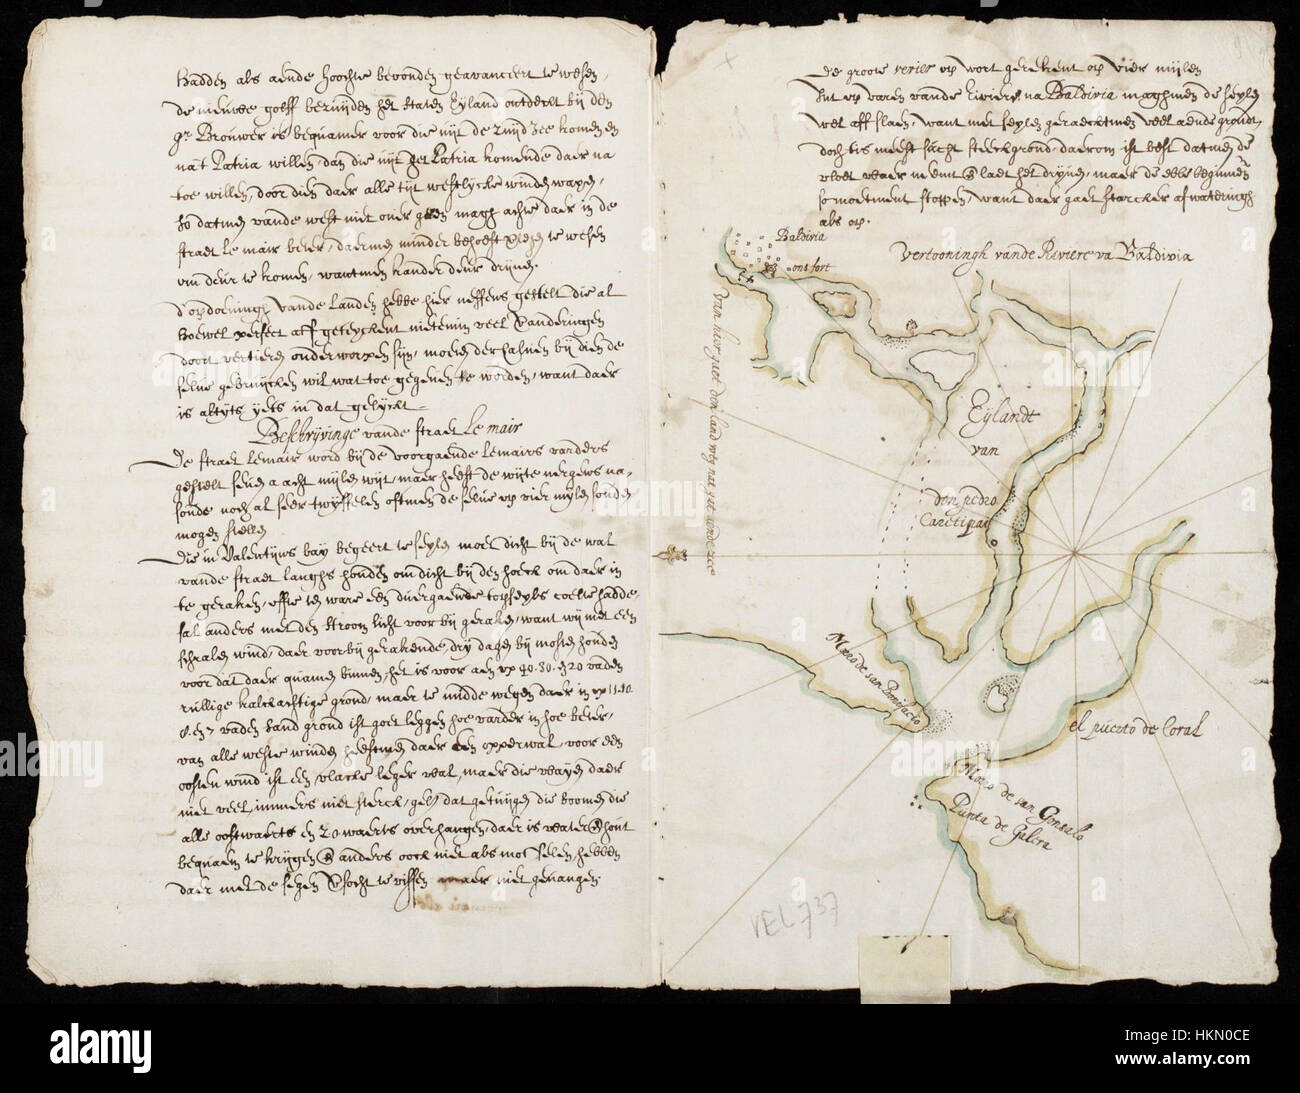 hadden als aende hoochte bevonden geavanceert te wesen,
de nieuwe golff bezuijden het Staten Eyland ontdeckt bij den
Hr Brouwer is bequamer voor die uijt de Zuijd Zee komen en
na t Patria willen, dan die uijt het Patria komende daer na
toe willen, door dien daer alle tijt westlycke winden waijen,
so datmen vande west niet over geen magh achte daer in de
straet le mair beter, daermen minder behoeft te wesen
om deur te komen, wantmen kander deur drijven.
D'opdoeningh vande landen hebbe hier neffens gestelt die al
hoewel perfect aff geteyckent niettemin veel Veranderingen
door vertieren onderworpen sijn, moeten derhalven bij dien de
selve gebruijcken wil wat toe gegeven te worden, want daer
is altyts yets in dat gelyckt.
Beschrijvinge vande straet Le mair
De straet Lemair word bij de voorgaende Lemairs vaerders
gestelt seven a acht mijlen wijt, maer heeft de wijte nergens na
soude noch al seer twijffelen oftmen de selve op vier mijlen soude
mogen stellen
Die in Valentijns bay begeert te seylen moet dicht bij de wal
vande straet langhs houden om dicht bij den hoeck om daer in
te geraken, offte ten ware een duergaende topseyls coelte hadde
sal anders met den stroom licht voor bij geraken, want wij met een
schralen wind, daer voorbij gerakende dry dagen bij mosten houden
voor dat daer quamen binnen, het is voor aen op 40. 30. en 20 vaden
rullige kalckachtige grond, maer te midde wegen daer in op 11. 10.
8. en 7 vaden Sand grond ist goet leggen hoe varder in hoe beter,
van alle weste winden heeftmen daer een opperwal, voor een
oosten wind ist een vlacke leger wal, maer die wayen daer
niet veel, immers niet sterck, gelyc dat getuijgen die boomen die
alle oostwaerts en ZO waerts overhangen, daer is water & hout
bequaem te krijgen & anders oock niet als mosselen, hebben
daer met de segen Vsocht te vissen maer niet gevangen.
De groote verier op wort gerekent op vier mijlen
Int op varen vande Riviere na Baldivia maghmen de seylen
wel aff slaen, want met seylen geraecktmen veel aende grondt,
doch tis meest sacht steeckgrond, daerom ist best datmen de
vloet waer neemt & laet het dryven, maer de ebbe beginnen
so moetment stoppen, want daer gaet stercker afwateringh
als op.
Vertooningh vande Riviere va Baldivia
Baldivia
ont fort
van hier gaet den land weg nat gat
Eijlandt
van
don pedro
Morro de san Bonifacio
el puerto de Coral
Morro de san Gonsalo
Punta de Galera
VEL 737
alamy
Image ID: HKN0CE
www.alamy.com